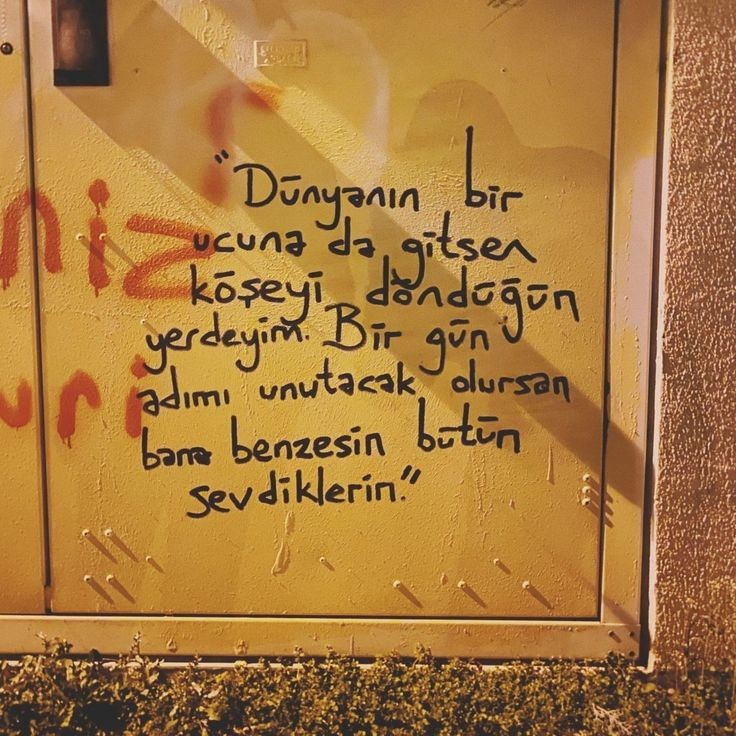 "Dünyanın bir
ucuna da gitsen
köşeyi döndüğün
yerdeyim. Bir gün
adımı unutacak olursan
bana benzesin bütün
sevdiklerin."
niz
uri